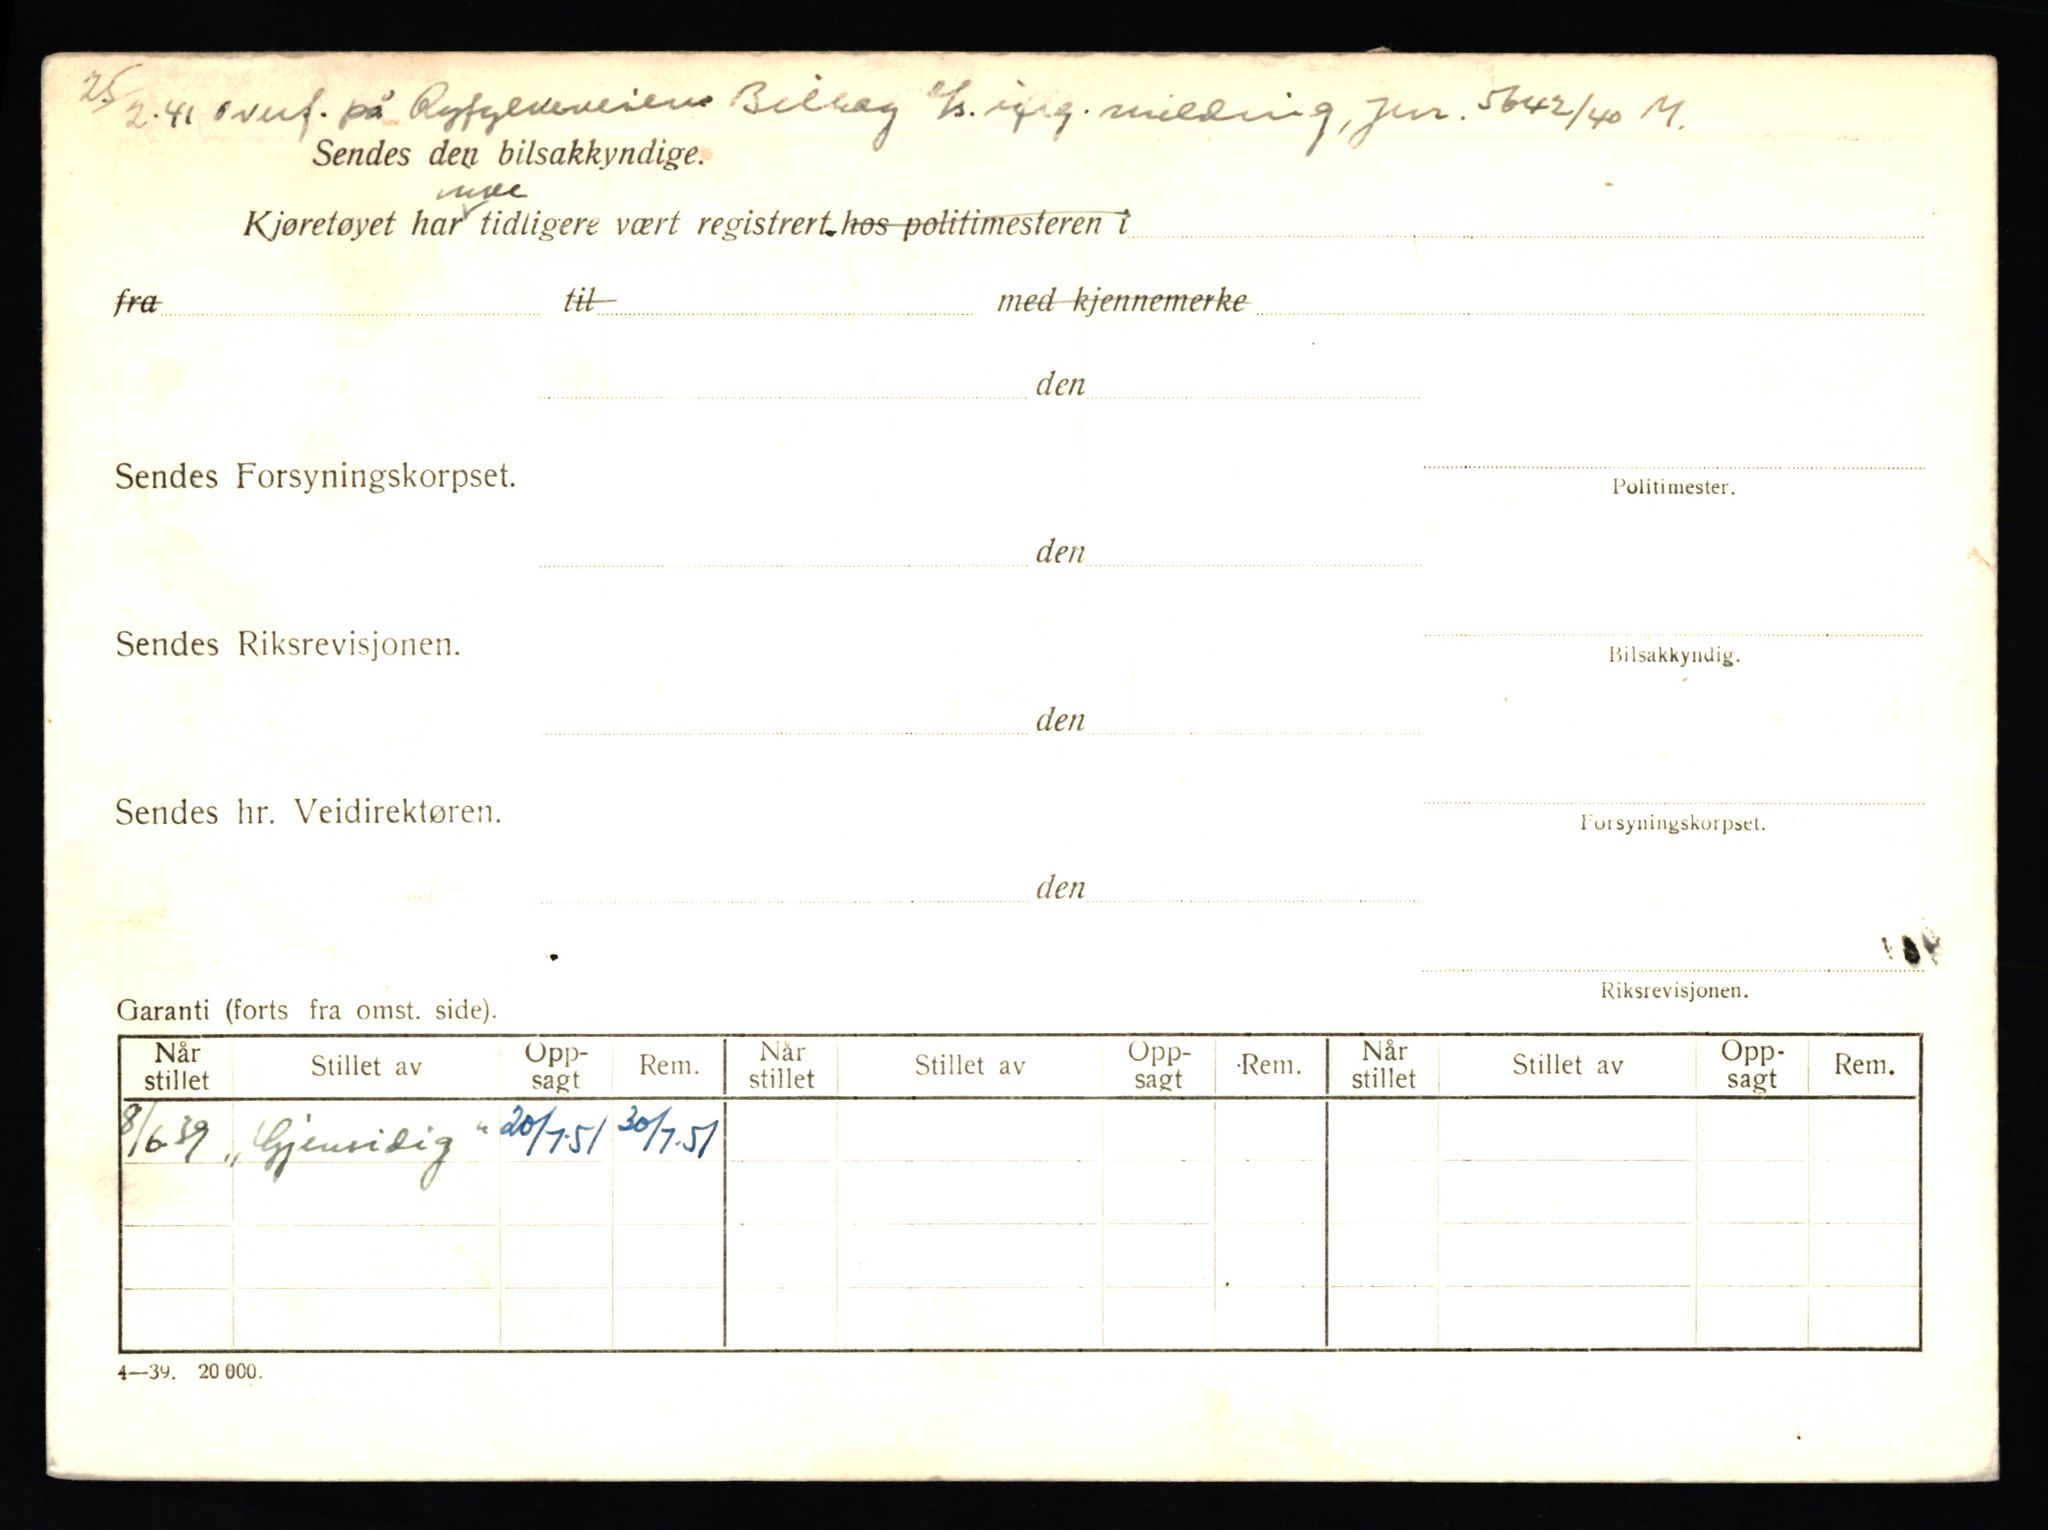 25/2.41 overf. på Ryfylkeveiens Billag A/s. iflg. melding, jnr. 5642/40 M.
Sendes den bilsakkyndige.
ikke
Kjøretøyet har tidligere vært registrert. hos politimesteren i
fra til med kjennemerke
den
Sendes Forsyningskorpset.
Politimester.
den
Sendes Riksrevisjonen.
Bilsakkyndig.
den
Sendes hr. Veidirektøren.
Forsyningskorpset.
den
Riksrevisjonen.
Garanti (forts fra omst. side).
Når stillet Stillet av Opp-sagt Rem. Når stillet Stillet av Opp-sagt Rem. Når stillet Stillet av Opp-sagt Rem.
8/6 39 „Gjensidig" 20/7.51 30/7.51
4—39. 20 000.